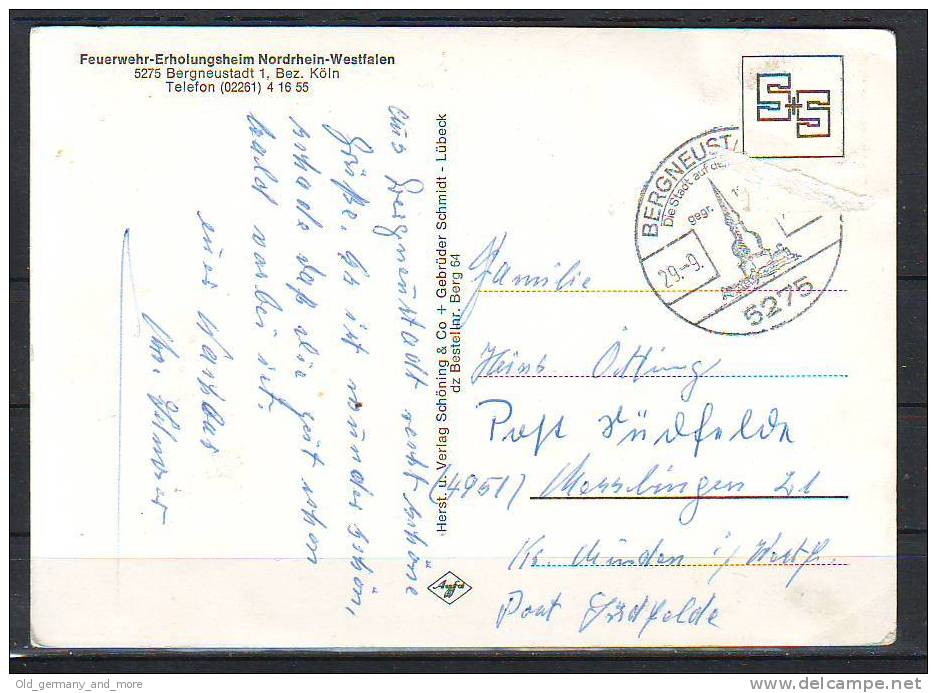 Feuerwehr-Erholungsheim Nordrhein-Westfalen
5275 Bergneustadt 1, Bez. Köln
Telefon (02261) 4 16 55
aus Bergneustadt recht schöne
Grüße, Es ist wunderschön,
schade daß die Zeit schon
bald vorbei ist.
euer Nachbar
Herst. u. Verlag Schöning & Co + Gebrüder Schmidt - Lübeck
dz Bestellnr. Berg 64
S+S
BERGNEUST
Die Stadt auf de
gegr. 1
29.-9.
5275
Familie
Heinz Ötting
Post Südfelde
(4951) Messlingen 21
Kr. Minden i/ Westf.
Post Südfelde
Agfa
Old_germany_and_more
delcampe.net